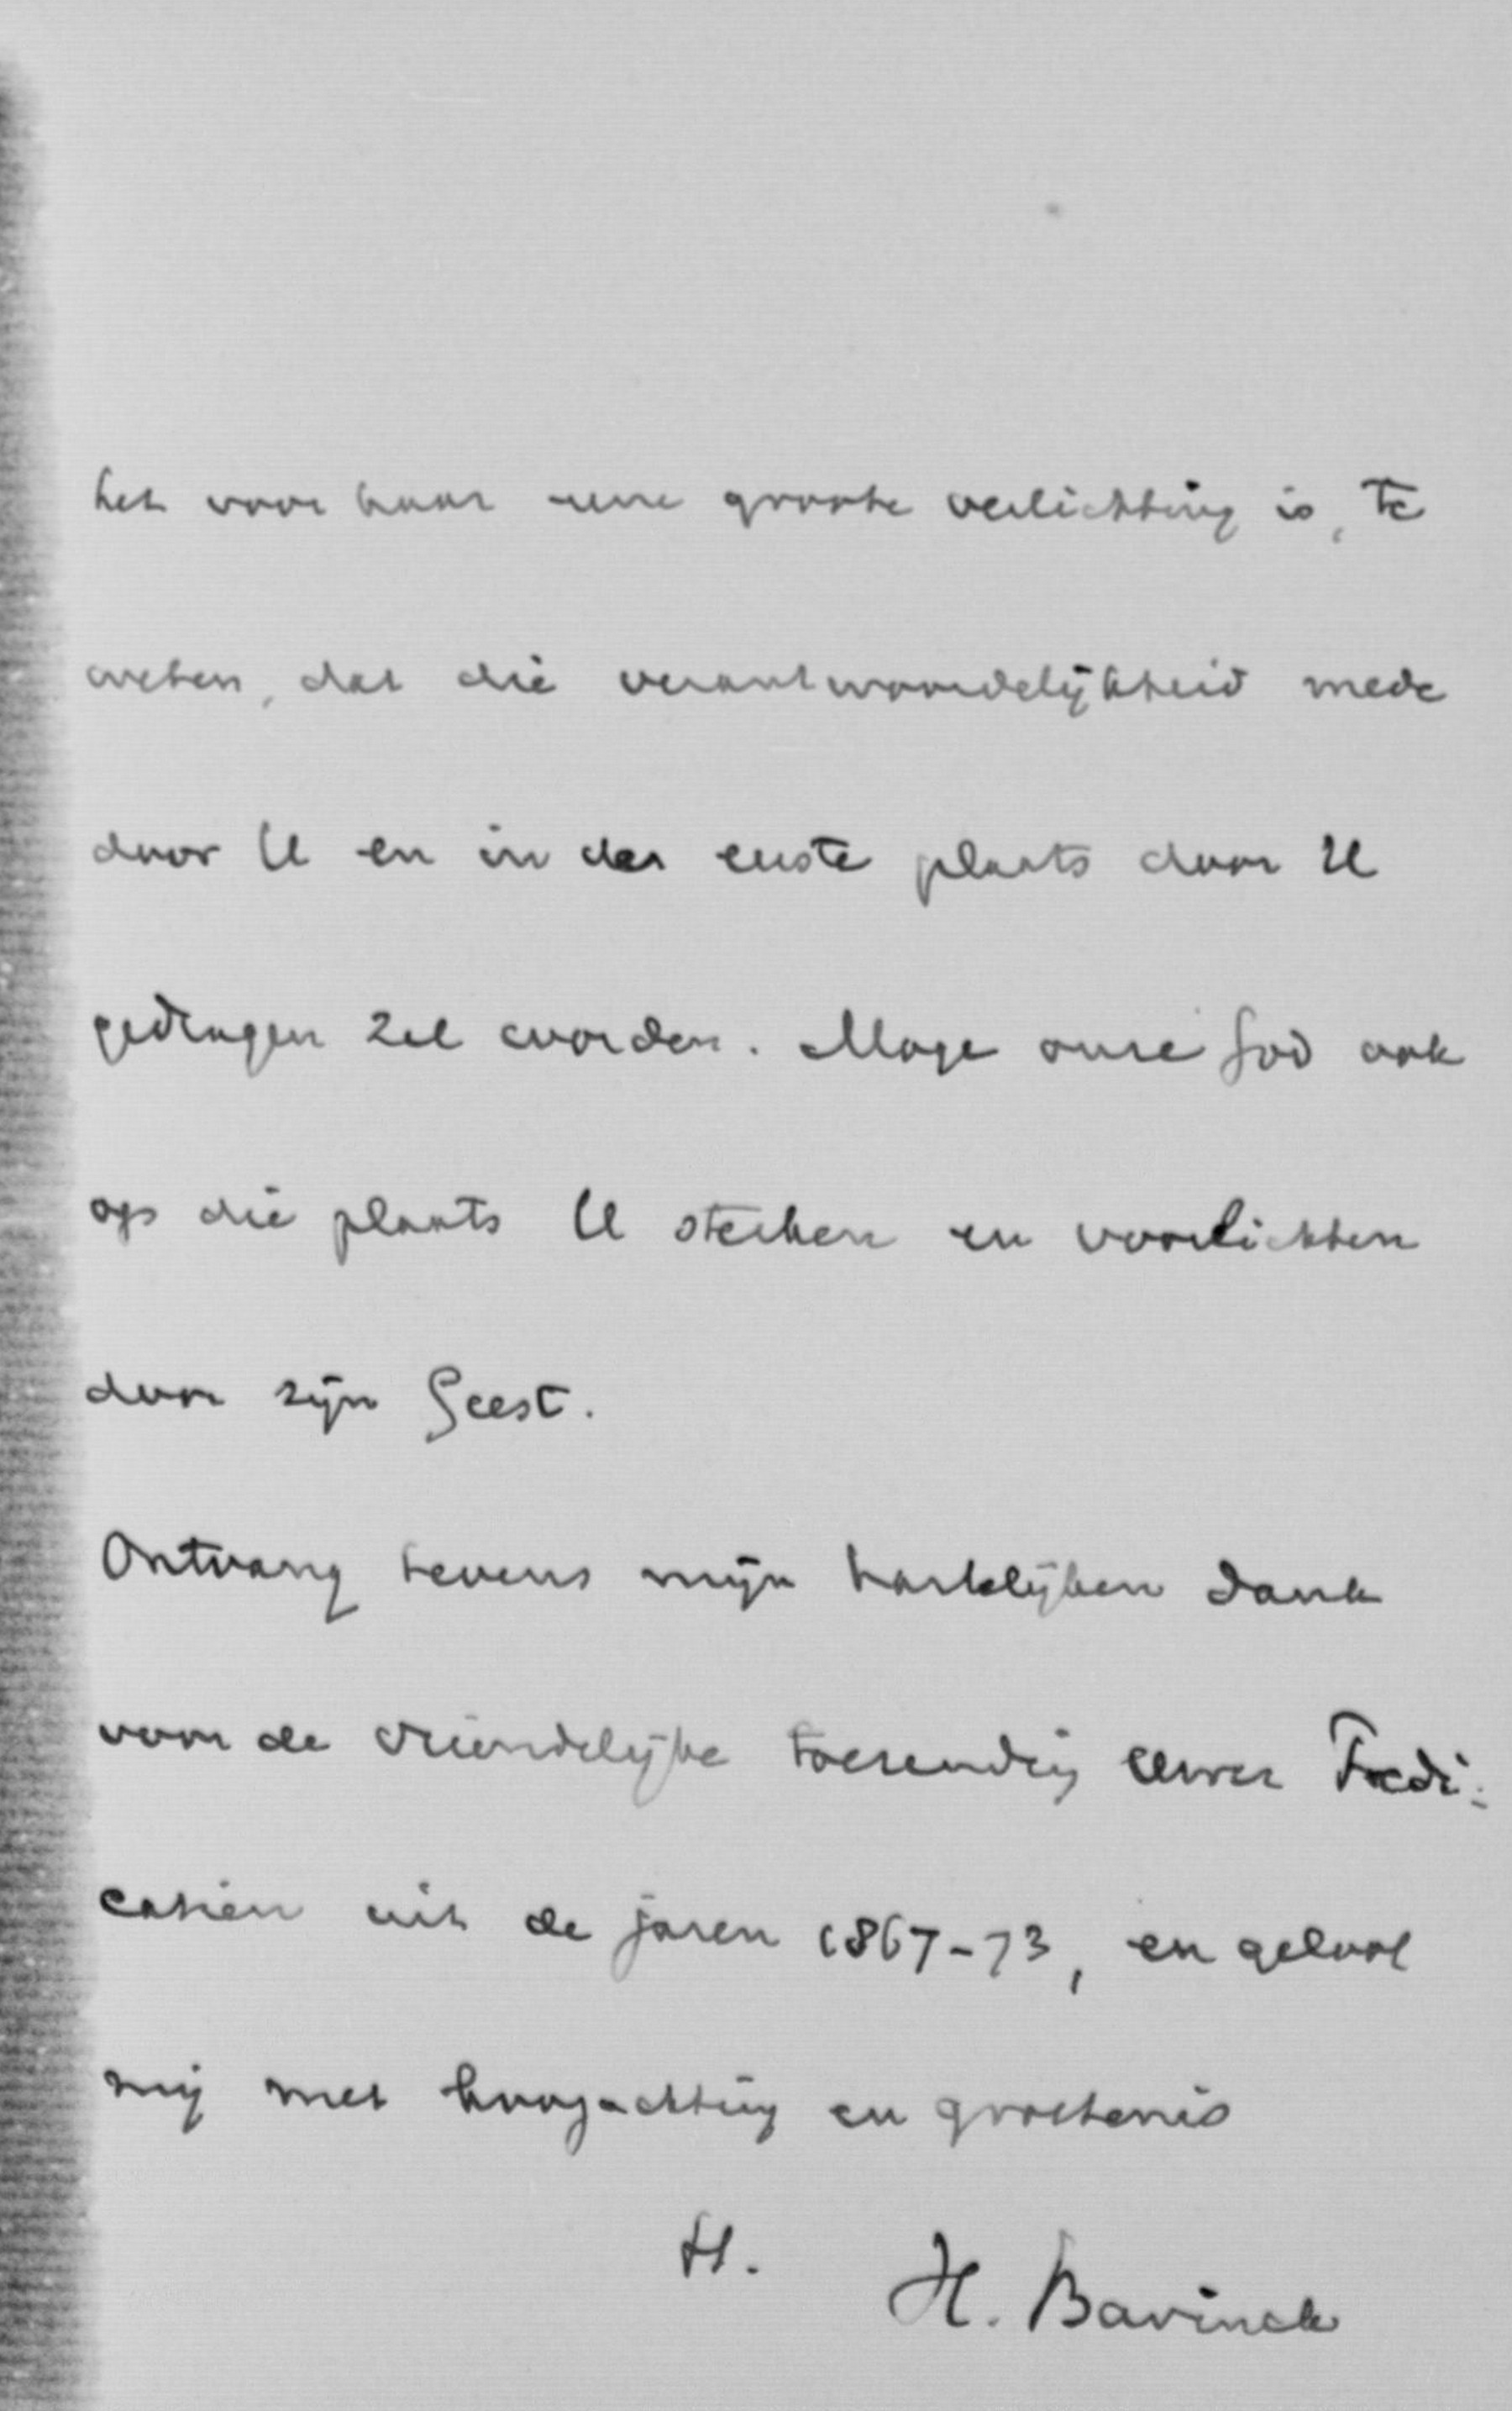 het voor haar eene groote verlichting is, te
weten, dat die verantwoordelijkheid mede
door U en in de eerste plaats door U
gedragen zal worden. Moge onze God ook
op die plaats U sterken en voorlichten
door zijn Geest.
Ontvang tevens mijn hartelijken dank
voor de vriendelijke toezending Uwer Predi-
catiën uit de jaren 1867-73, en geloof
mij met hoogachting en groetenis
H. Bavinck